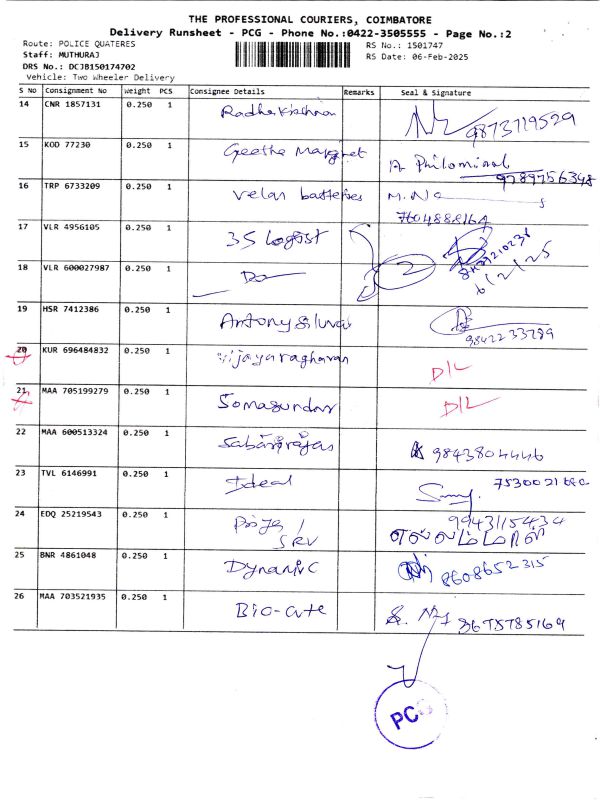 THE PROFESSIONAL COURIERS, COIMBATORE
Delivery Runsheet - PCG - Phone No.:0422-3505555 - Page No.:2
Route: POLICE QUATERES RS No.: 1501747
Staff: MUTHURAJ RS Date: 06-Feb-2025
DRS No.: DCJB150174702
Vehicle: Two Wheeler Delivery
S No Consignment No Weight PCS Consignee Details Remarks Seal & Signature
14 CNR 1857131 0.250 1 Radhakrishnan 9873719529
15 KOD 77230 0.250 1 Geetha Margret A Philominal 9789756348
16 TRP 6733209 0.250 1 Velan batteries 7604888164
17 VLR 4956105 0.250 1 3S Logist
18 VLR 600027987 0.250 1 Do 2 6/2/25
19 HSR 7412386 0.250 1 Antony 9842233789
20 KUR 696484832 0.250 1 Vijayaraghavan D/L
21 MAA 705199279 0.250 1 Somasundar D/L
22 MAA 600513324 0.250 1 9843804446
23 TVL 6146991 0.250 1 Ideal
24 EDQ 25219543 0.250 1 Priya / SRV 9943115434
25 BNR 4861048 0.250 1 Dynamic 8608652315
26 MAA 703521935 0.250 1 Bio-cute 8675785169
PCG